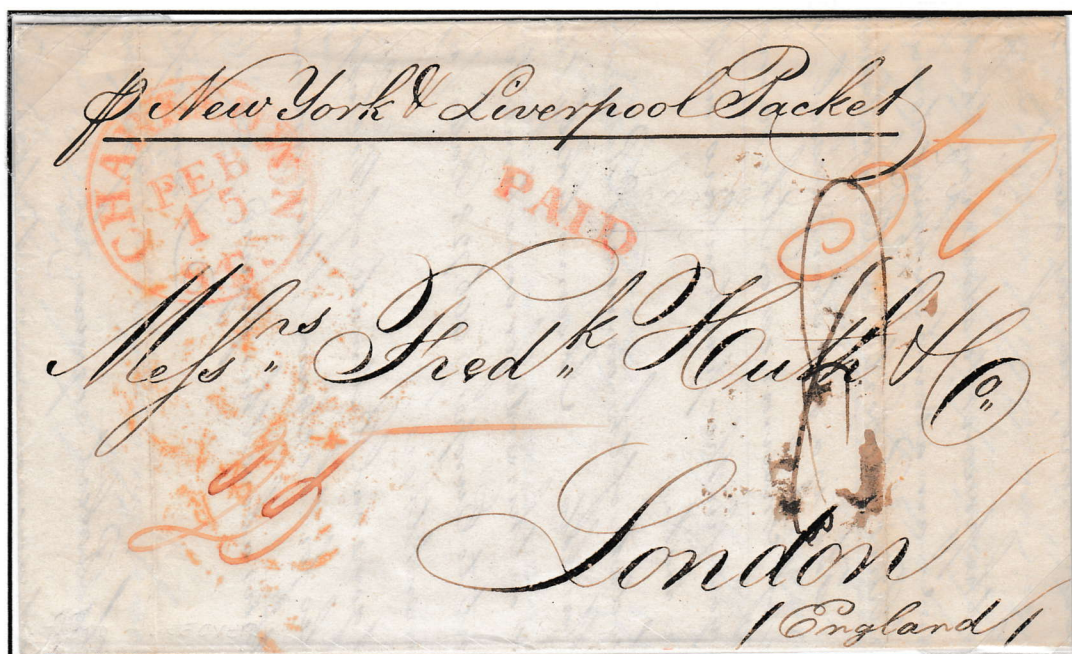 ⅌ New York & Liverpool Packet
CHARLESTON
FEB
15
PAID
Messrs Fredk Huth & Co
London
/England/